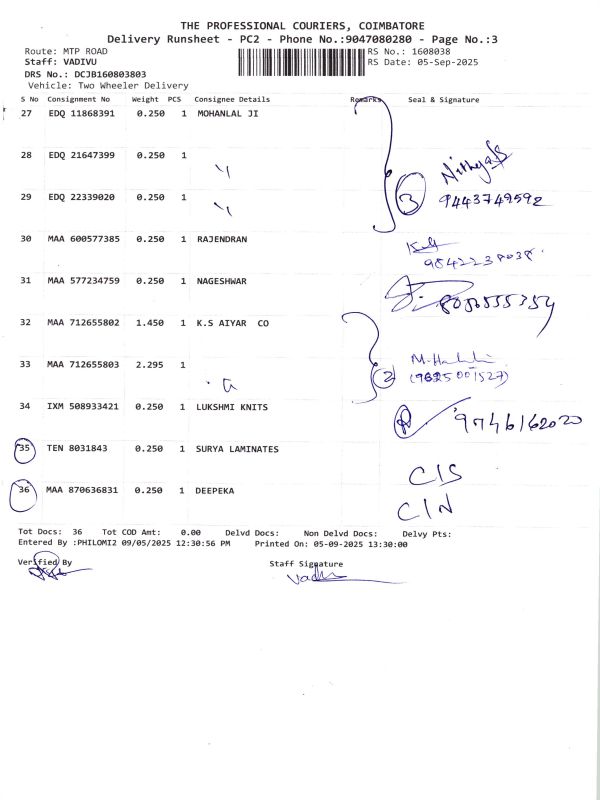 THE PROFESSIONAL COURIERS, COIMBATORE
Delivery Runsheet - PC2 - Phone No.:9047080280 - Page No.:3
Route: MTP ROAD RS No.: 1608038
Staff: VADIVU RS Date: 05-Sep-2025
DRS No.: DCJB160803803
Vehicle: Two Wheeler Delivery
S No Consignment No Weight PCS Consignee Details Remarks Seal & Signature
27 EDQ 11868391 0.250 1 MOHANLAL JI
28 EDQ 21647399 0.250 1
3 9443749592
29 EDQ 22339020 0.250 1
30 MAA 600577385 0.250 1 RAJENDRAN
31 MAA 577234759 0.250 1 NAGESHWAR
32 MAA 712655802 1.450 1 K.S AIYAR CO
33 MAA 712655803 2.295 1
2
34 IXM 508933421 0.250 1 LUKSHMI KNITS
9746162020
35 TEN 8031843 0.250 1 SURYA LAMINATES
C/S
36 MAA 870636831 0.250 1 DEEPEKA
C/N
Tot Docs: 36 Tot COD Amt: 0.00 Delvd Docs: Non Delvd Docs: Delvy Pts:
Entered By :PHILOMI2 09/05/2025 12:30:56 PM Printed On: 05-09-2025 13:30:00
Verified By Staff Signature